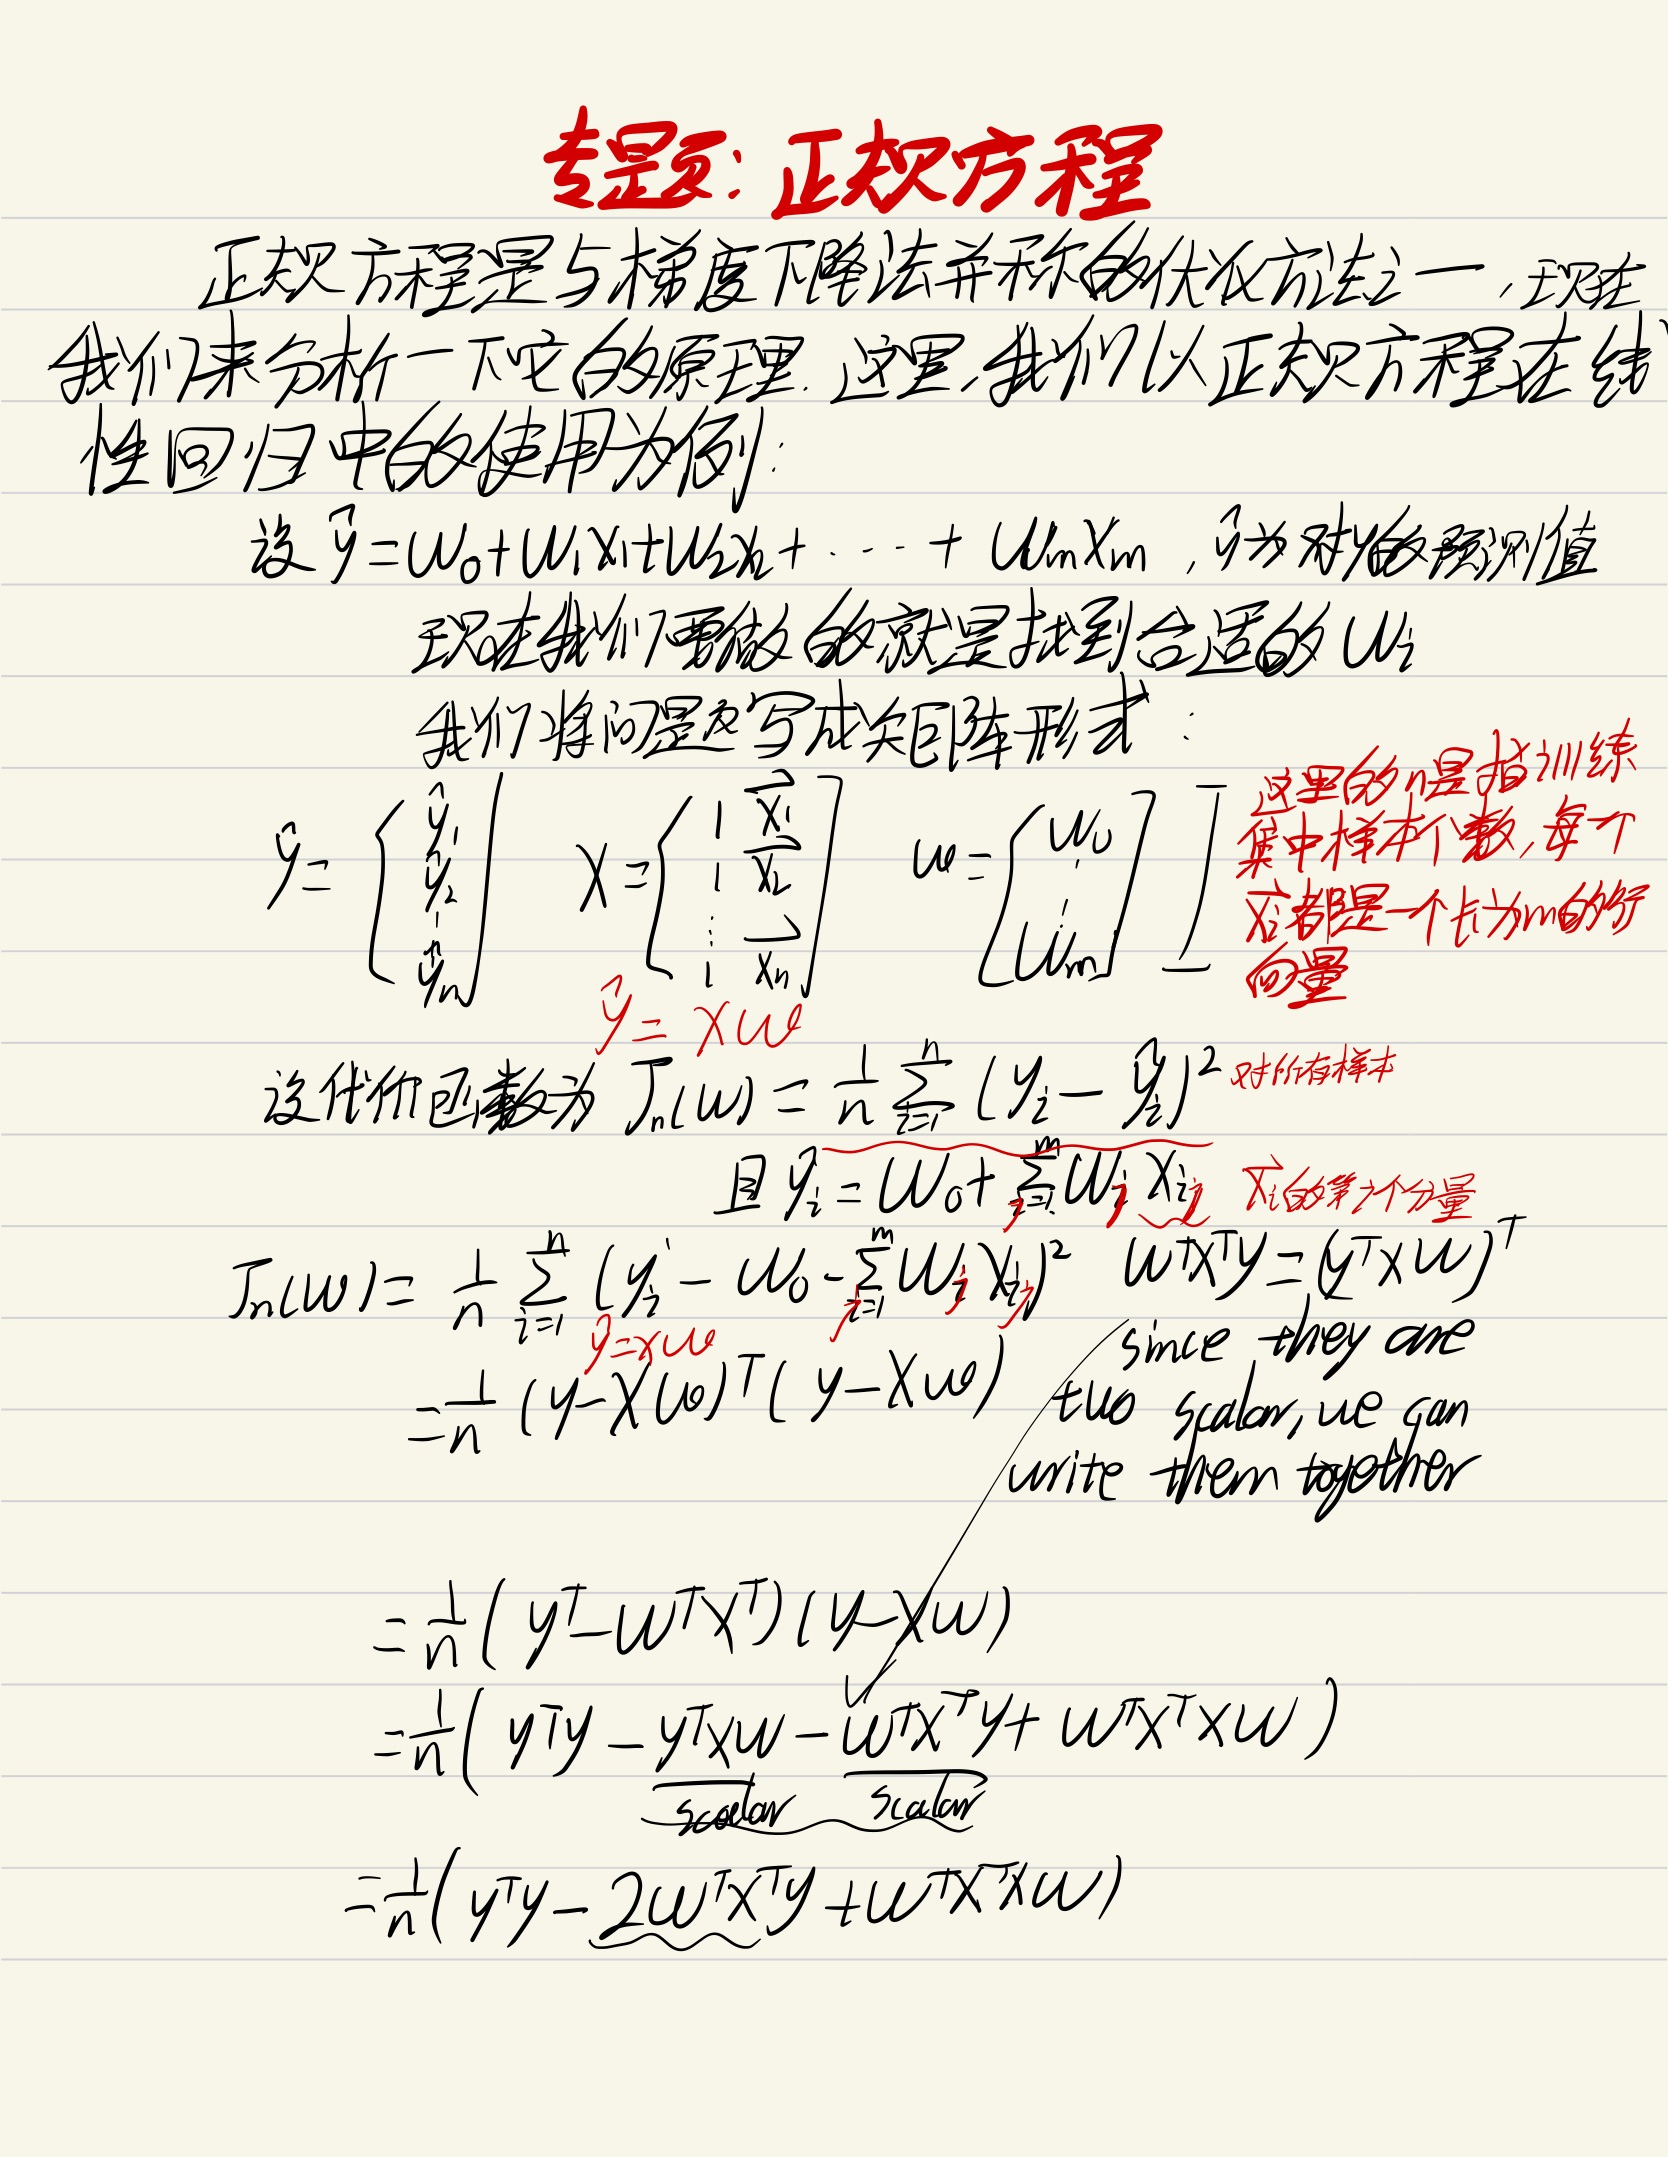 专题: 正规方程
正规方程是与梯度下降法并称的优化方法之一,现在
我们来分析一下它的原理. 这里,我们以正规方程在线
性回归中的使用为例:
设 ŷ = w₀+w₁x₁+w₂x₂+ ···· + wₘxₘ , ŷ为对y的预测值
现在我们要做的就是找到合适的 wᵢ
我们将问题写成矩阵形式 :
ŷ = [ŷ₁ ŷ₂ ⋮ ŷₙ] X = [1 x⃗₁ 1 x⃗₂ ⋮ 1 x⃗ₙ] w = [w₀ ⋮ wₘ]
这里的n是指训练
集中样本个数,每个
x⃗ᵢ都是一个长为m的行
向量
ŷ = Xw
设代价函数为 Jₙ(w) = 1/n Σᵢ₌₁ⁿ (yᵢ − ŷᵢ)² 对所有样本
且 ŷᵢ = w₀ + Σⱼ₌₁ᵐ wⱼ xᵢⱼ x⃗ᵢ的第j个分量
Jₙ(w) = 1/n Σᵢ₌₁ⁿ (yᵢ − w₀ − Σⱼ₌₁ᵐ wⱼ xᵢⱼ)² wᵀXᵀy = (yᵀXw)ᵀ
ŷ=xw
= 1/n (y−Xw)ᵀ(y−Xw)
since they are
two scalar, we can
write them together
= 1/n (yᵀ−wᵀXᵀ)(y−Xw)
= 1/n (yᵀy − yᵀXw − wᵀXᵀy + wᵀXᵀXw)
scalar scalar
= 1/n (yᵀy − 2wᵀXᵀy + wᵀXᵀXw)